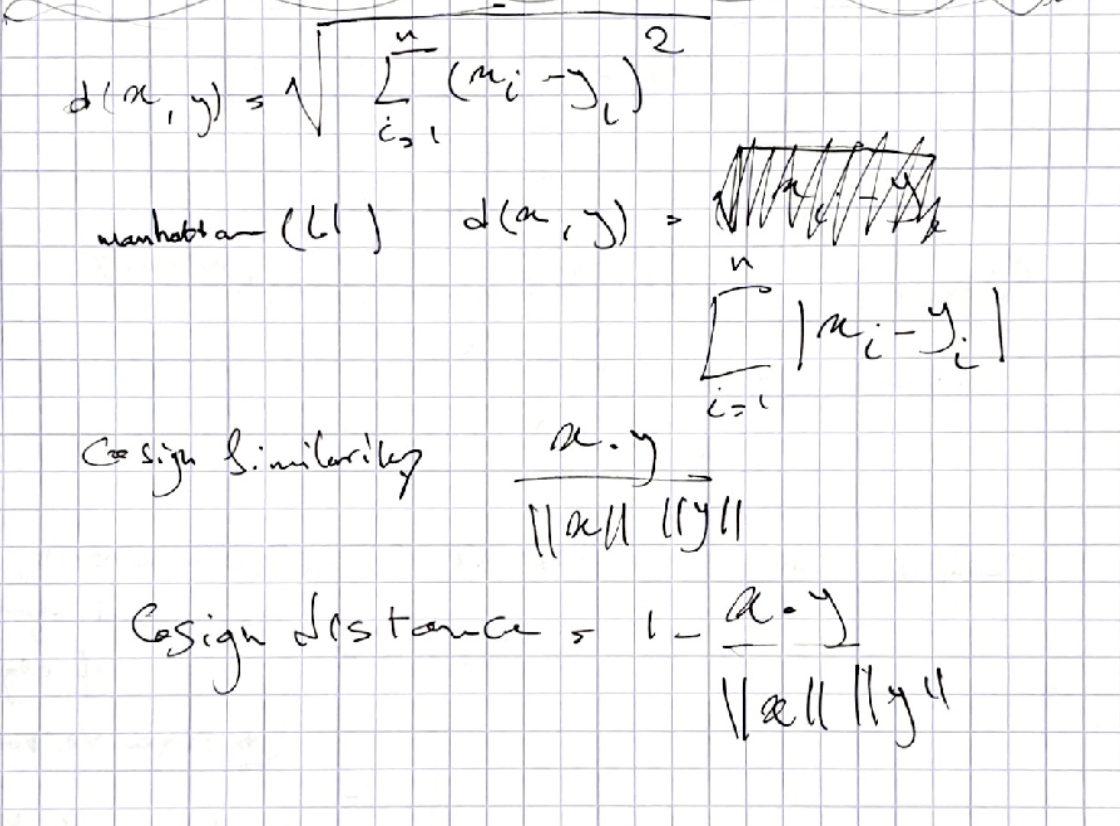 d(x, y) = √ Σ_{i=1}^{n} (x_i - y_i)^2
manhattan (L1) d(x, y) =
Σ_{i=1}^{n} |x_i - y_i|
Cosign Similarity x·y / ||x|| ||y||
Cosign distance = 1 - x·y / ||x|| ||y||